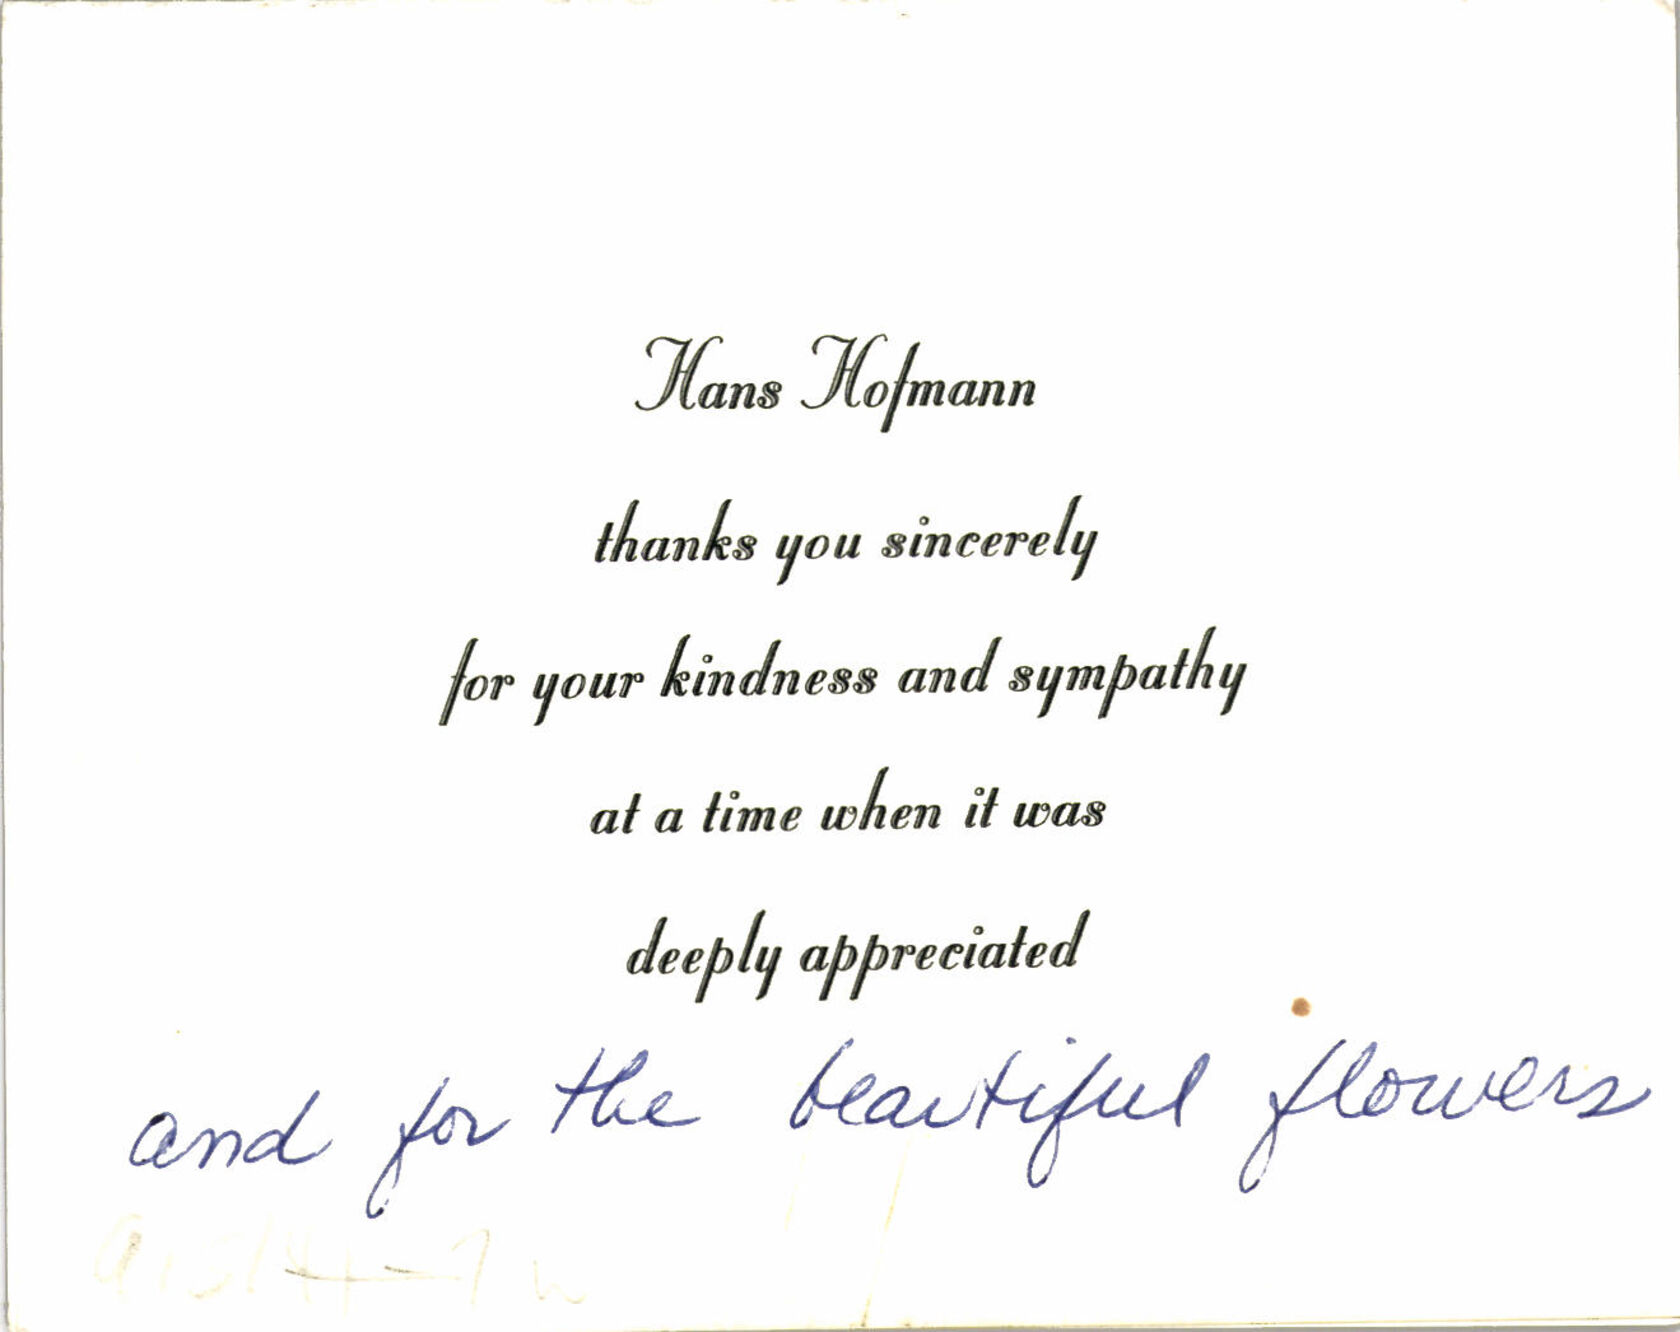 Hans Hofmann
thanks you sincerely
for your kindness and sympathy
at a time when it was
deeply appreciated
and for the beautiful flowers